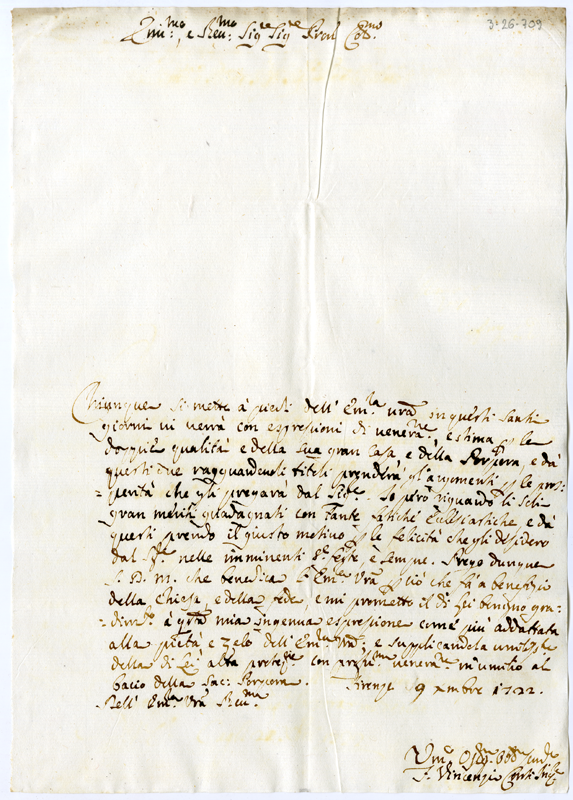 3-26-709
Em:mo, e Reu:mo Sig.re Sig.re Pron Col.mo
Chiunque si mette à piedi dell' Em.za vrã in questi santi
giorni vi verrà con espressioni di venera.ne e stima p le
doppie qualità e della sua gran Casa, e della Porpora, e dà
questi due ragguardevoli titoli prenderà gl'argomenti p le pros-
=perità che gli pregarà dal Sig.re. Io però riguardo li Soli
gran meriti guadagnati con tante fatiche Eccl.siastiche, e dà
questi prendo il giusto motivo p le felicità che gli desidero
dal Sig.re nelle imminenti S.te feste, e sempre. Prego dunque
S. D. M. che benedica l'Em.za Vrã p ciò che fà a benefizio
della Chiesa, e della fede, e mi prometto il di Lei benigno gra-
-dim.to à q.sta mia ingenua espressione come più addattata
alla pietà e zelo dell' Em.za Vrã; e supplicandola umilm.te
della di Lei alta protez.ne con prof.ma venera.ne m'umilio al
bacio della Sac: Porpora. Firenze 9 xmbre 1722.
Dell' Em.za Vrã Reu.ma
Um.o Dev.mo Obb.mo Serv.re
F. Vincenzio